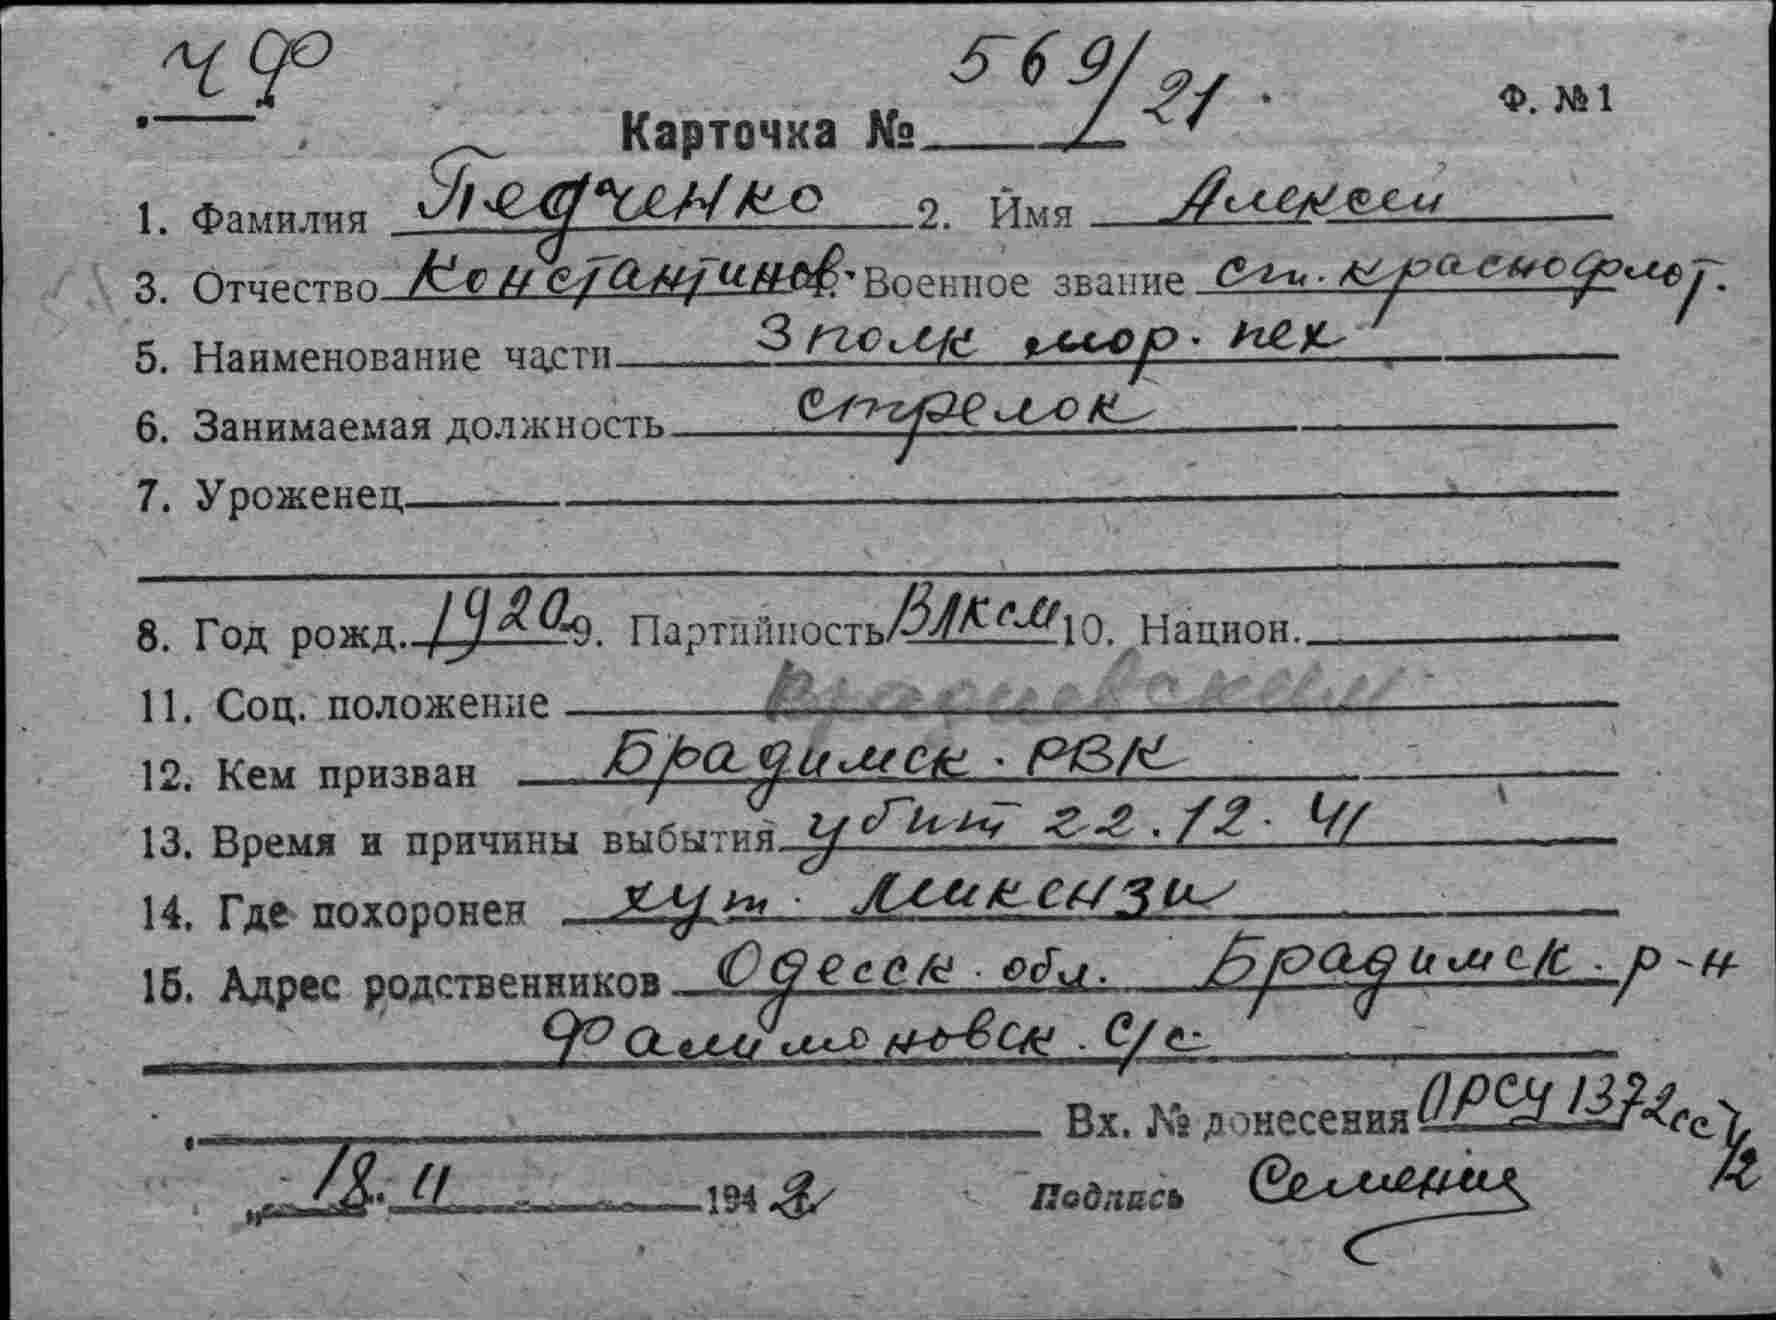 ЧФ
569/21
Ф. №1
Карточка №
1. Фамилия Педченко 2. Имя Алексей
3. Отчество Константинов. Военное звание ст. краснофлот.
5. Наименование части 3 полк мор. пех
6. Занимаемая должность стрелок
7. Уроженец
8. Год рожд. 1920 9. Партийность ВЛКСМ 10. Национ.
11. Соц. положение
12. Кем призван Брадимск. РВК
13. Время и причины выбытия убит 22.12.41
14. Где похоронен хут. Микензи
15. Адрес родственников Одесск. обл. Брадимск. р-н
Фалимоновск. с/с
Вх. № донесения ОРСУ 1372сс
12
„18. 11 1942
Подпись